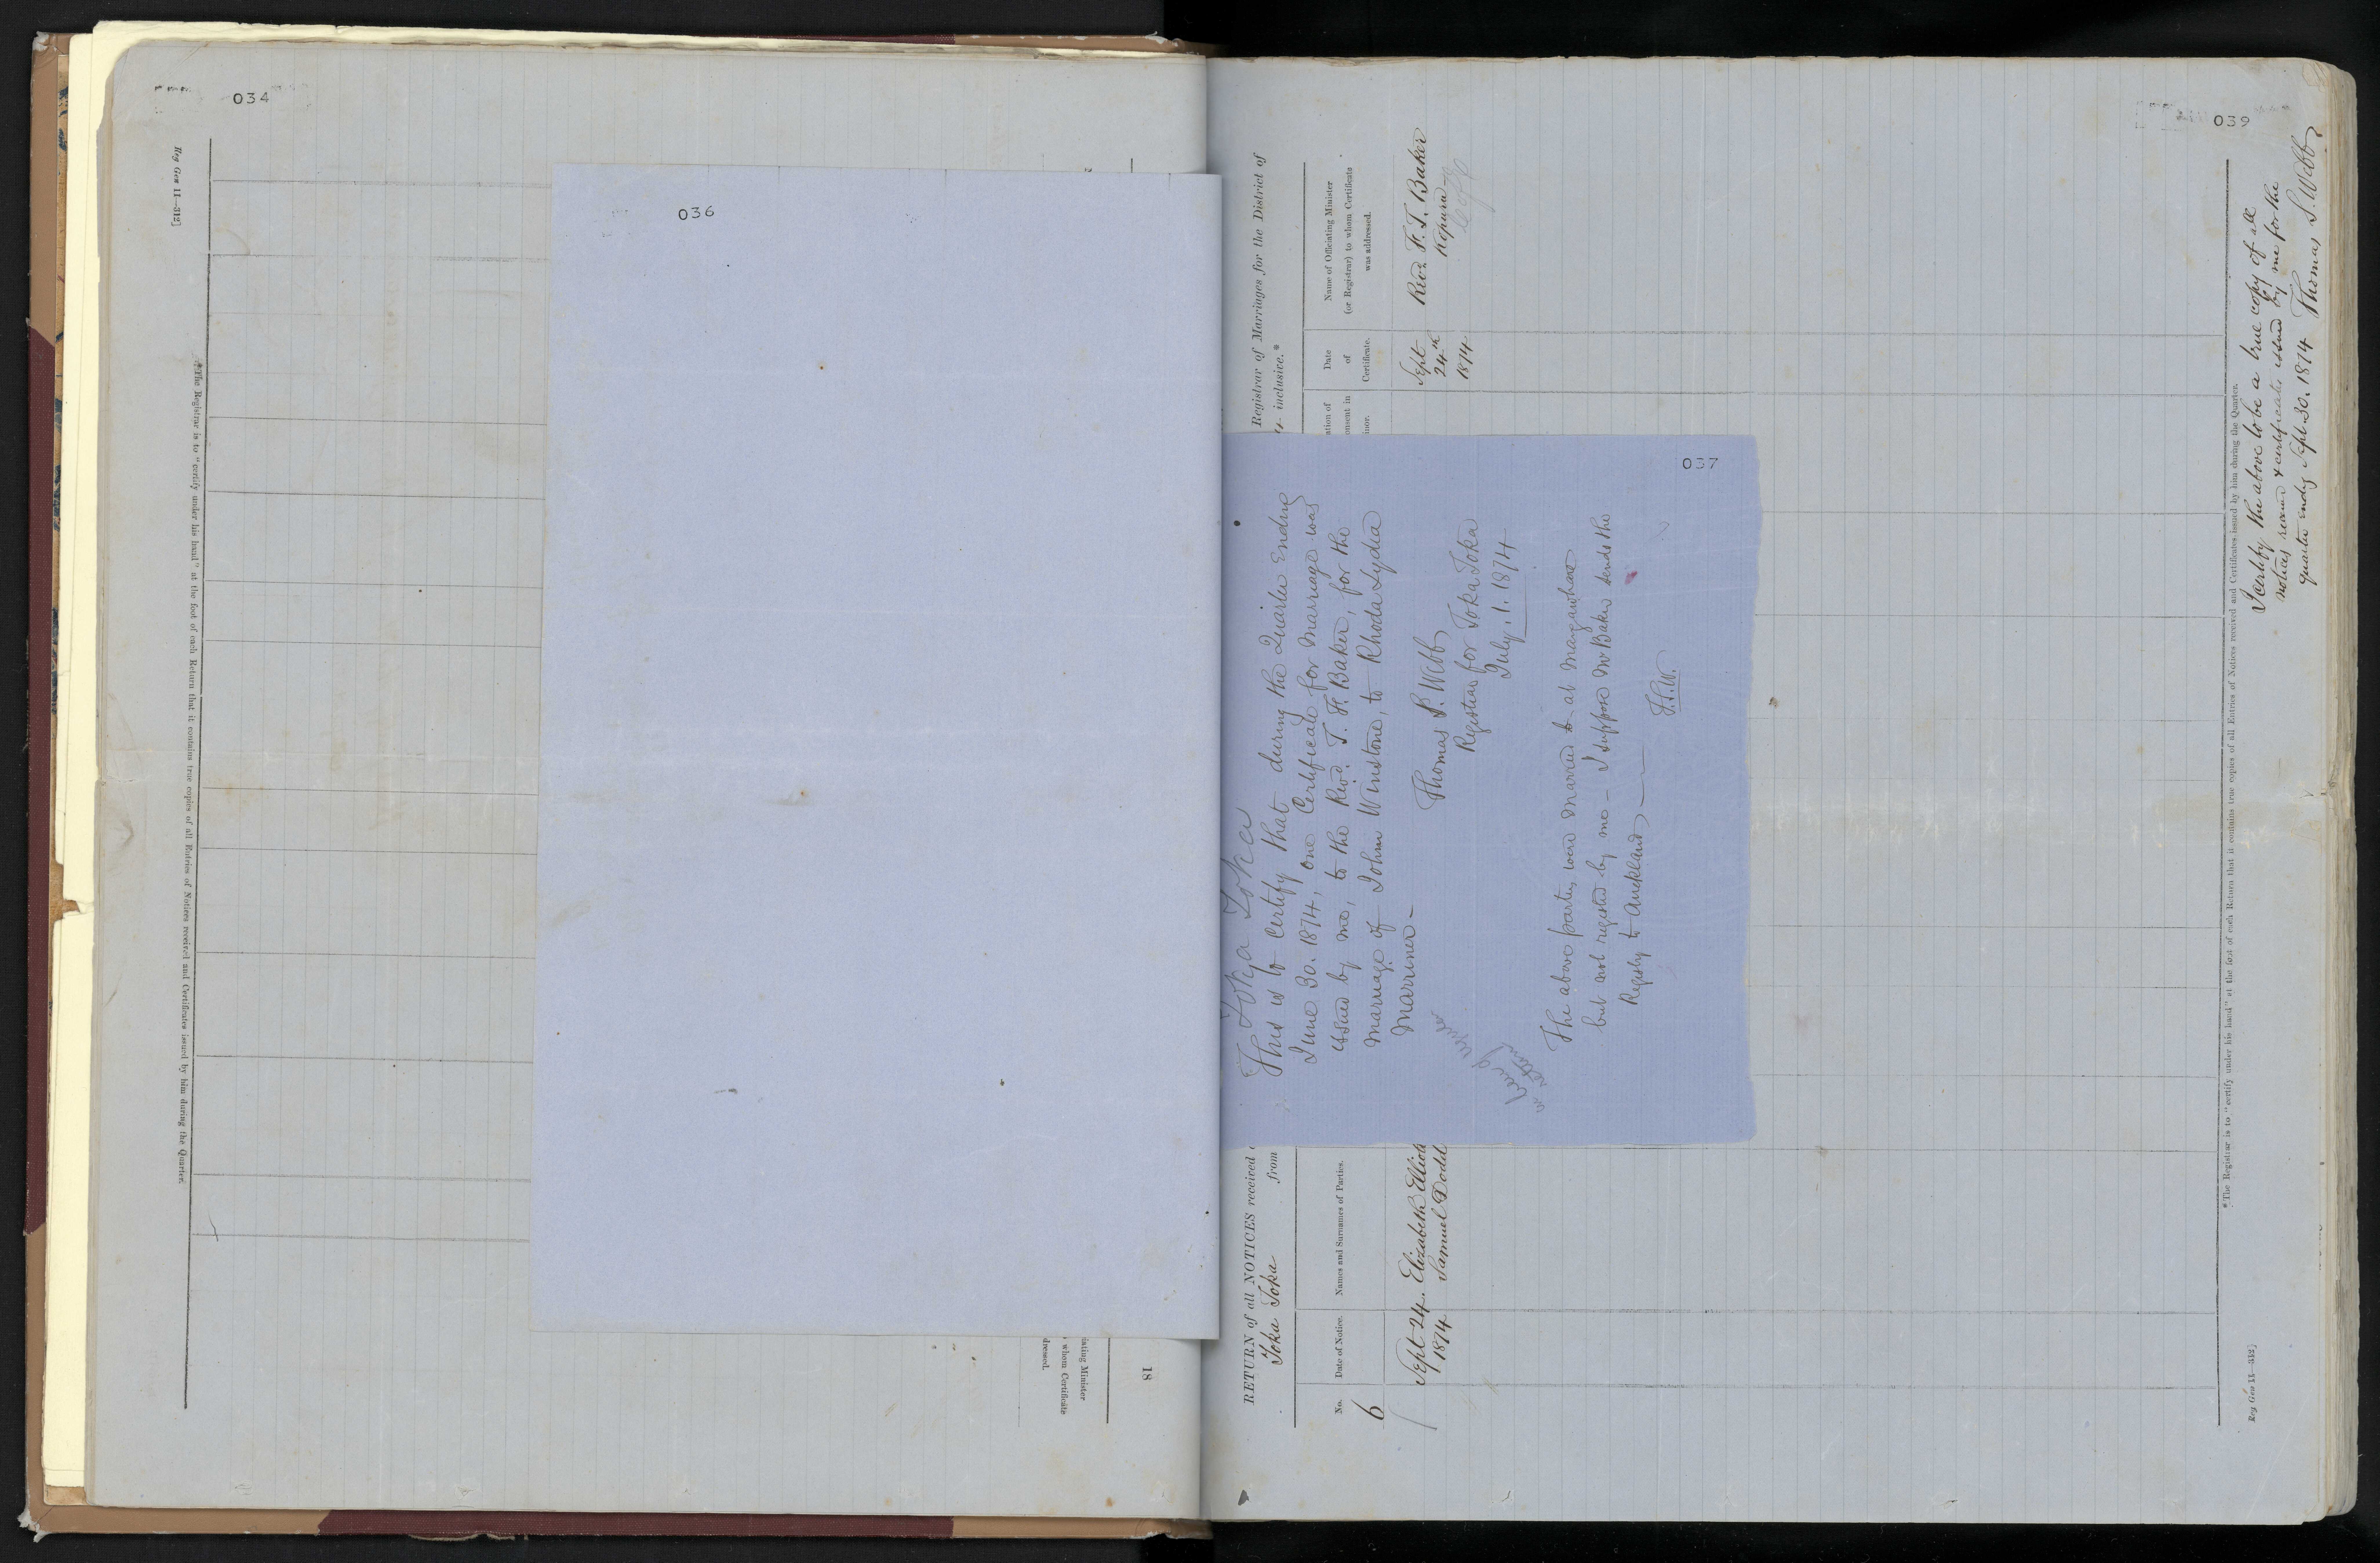 034
Reg Gen 11—312]
*The Registrar is to "certify under his hand" at the foot of each Return that it contains true copies of all Entries of Notices received and Certificates issued by him during the Quarter.
18
iating Minister
whom Certificate
dressed.
036
037
Toka Toka
This is to Certify that during the Quarter Ending
June 30. 1874, one Certificate for Marriage was
issued by me, to the Revd. T. H. Baker, for the
marriage of John Winstone, to Rhoda Lydia
Marriner —
Thomas S. Webb
Registrar for Toka Toka
July. 1. 1874
The above parties, were married at Mangawhare
but not registed by me — I suppose Mr Baker sends the
Registy to Auckland —
T.S.W.
039
RETURN of all NOTICES received
Registrar of Marriages for the District of
Toka Toka
from
4 inclusive.*
No.
Date of Notice.
Names and Surnames of Parties.
ation of
onsent in
inor.
Date
of
Certificate.
Name of Officiating Minister
(or Registrar) to whom Certificate
was addressed.
6
Sept 24.
1874
Elizabeth Elliott
Samuel Dodd
Sept
24th
1874
Revd. F. T. Baker
Kopura
*The Registrar is to "certify under his hand" at the foot of each Return that it contains true copies of all Entries of Notices received and Certificates issued by him during the Quarter.
I certify the above to be a true copy of all
notices received & certificates issued by me for the
quarter endg Sept 30. 1874 Thomas S. Webb
Reg Gen 11—312]